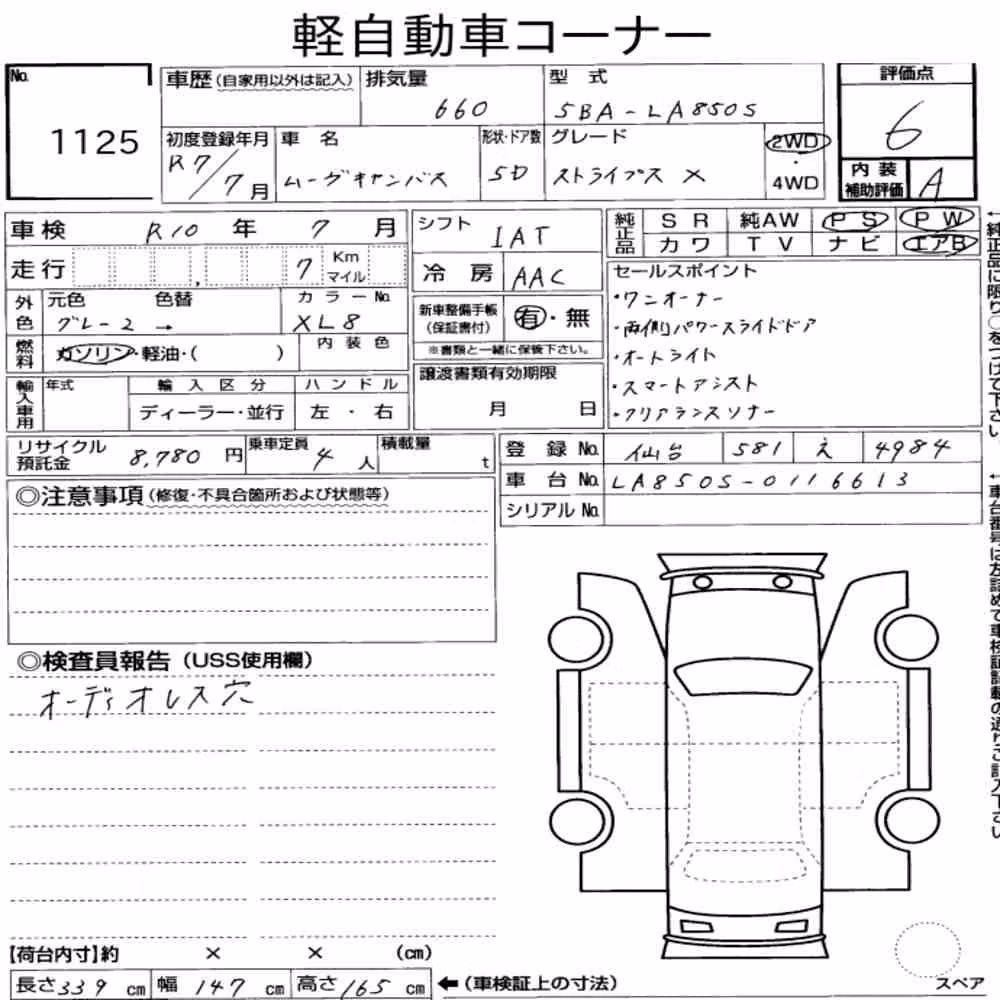 軽自動車コーナー
No. 1125
車歴(自家用以外は記入) 排気量 660 型式 5BA-LA850S 評価点 6
初度登録年月 R7/7月 車名 ムーヴキャンバス 形状・ドア数 5D グレード ストライプス X 2WD・4WD 内装補助評価 A
車検 R10年 7月 シフト IAT 純正品 SR 純AW PS PW
カワ TV ナビ エアB
走行 7 Km マイル 冷房 AAC
セールスポイント
・ワンオーナー
・両側パワースライドドア
・オートライト
・スマートアシスト
・クリアランスソナー
外色 元色 グレー2 色替 → カラーNo. XL8
新車整備手帳(保証書付) 有・無
※書類と一緒に保管下さい。
燃料 ガソリン・軽油・( ) 内装色
譲渡書類有効期限 月 日
輸入車用 年式 輸入区分 ハンドル
ディーラー・並行 左・右
リサイクル預託金 8,780円 乗車定員 4人 積載量 t
登録No. 仙台 581 え 4984
車台No. LA850S-0116613
シリアルNo.
◎注意事項(修復・不具合箇所および状態等)
◎検査員報告(USS使用欄)
オーディオレス穴
【荷台内寸】約 × × (cm)
長さ339cm 幅147cm 高さ165cm ←(車検証上の寸法)
スペア
←純正品に限り○をつけて下さい。